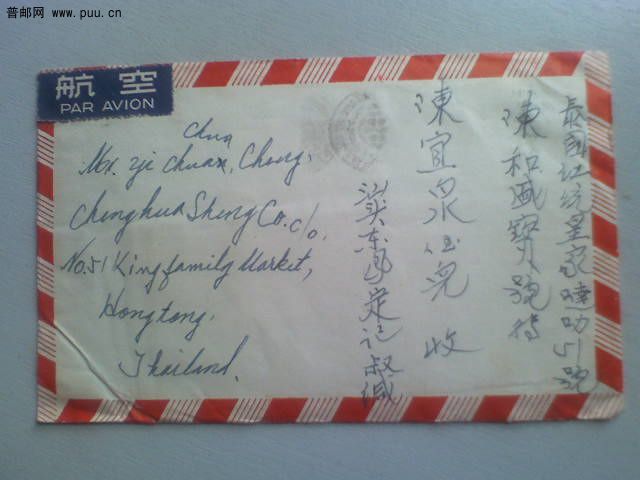 普邮网 www.puu.cn
航空
PAR AVION
Chua
Mr. Yi Chuan, Chang,
Chenghua Sheng Co. c/o.
No. 51 King family Market,
Hongtong.
Thailand.
泰國 皇家 叻51號
陳和盛寶號
陳宜泉 兒 收
汕头东 定記